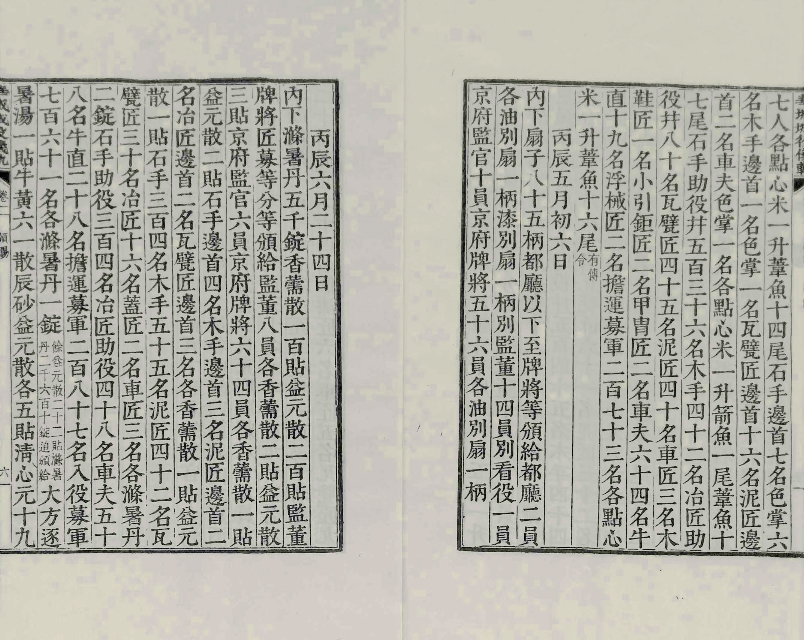 七人各點心米一升葦魚十四尾石手邊首七名色掌六
名木手邊首一名色掌一名瓦甓匠邊首十六名泥匠邊
首二名車夫色掌一名各點心米一升箭魚一尾葦魚十
七尾石手助役幷五百三十六名木手四十二名冶匠助
役幷八十名瓦甓匠四十五名泥匠四十名車匠三名木
鞋匠一名小引鉅匠二名甲冑匠二名車夫六十四名牛
直十九名浮械匠二名擔運募軍二百七十三名各點心
米一升葦魚十六尾有傳令
丙辰五月初六日
內下扇子八十五柄都廳以下至牌將等頒給都廳二員
各油別扇一柄漆別扇一柄別監董十四員別看役一員
京府監官十員京府牌將五十六員各油別扇一柄
丙辰六月二十四日
內下滌暑丹五千錠香薷散一百貼益元散二百貼監董
牌將匠募等分等頒給監董八員各香薷散二貼益元散
三貼京府監官六員京府牌將六十四員各香薷散一貼
益元散二貼石手邊首四名木手邊首三名泥匠邊首二
名冶匠邊首二名瓦甓匠邊首三名各香薷散一貼益元
散一貼石手三百四名木手五十五名泥匠四十二名瓦
甓匠三十名冶匠十六名蓋匠二名車匠三名各滌暑丹
二錠石手助役三百四名冶匠助役四十八名車夫五十
八名牛直二十八名擔運募軍二百八十七名入役募軍
七百六十一名各滌暑丹一錠餘益元散二十二貼滌暑丹二千六百十錠追頒給大方逐
暑湯一貼牛黃六一散辰砂益元散各五貼淸心元十九
卷二
六